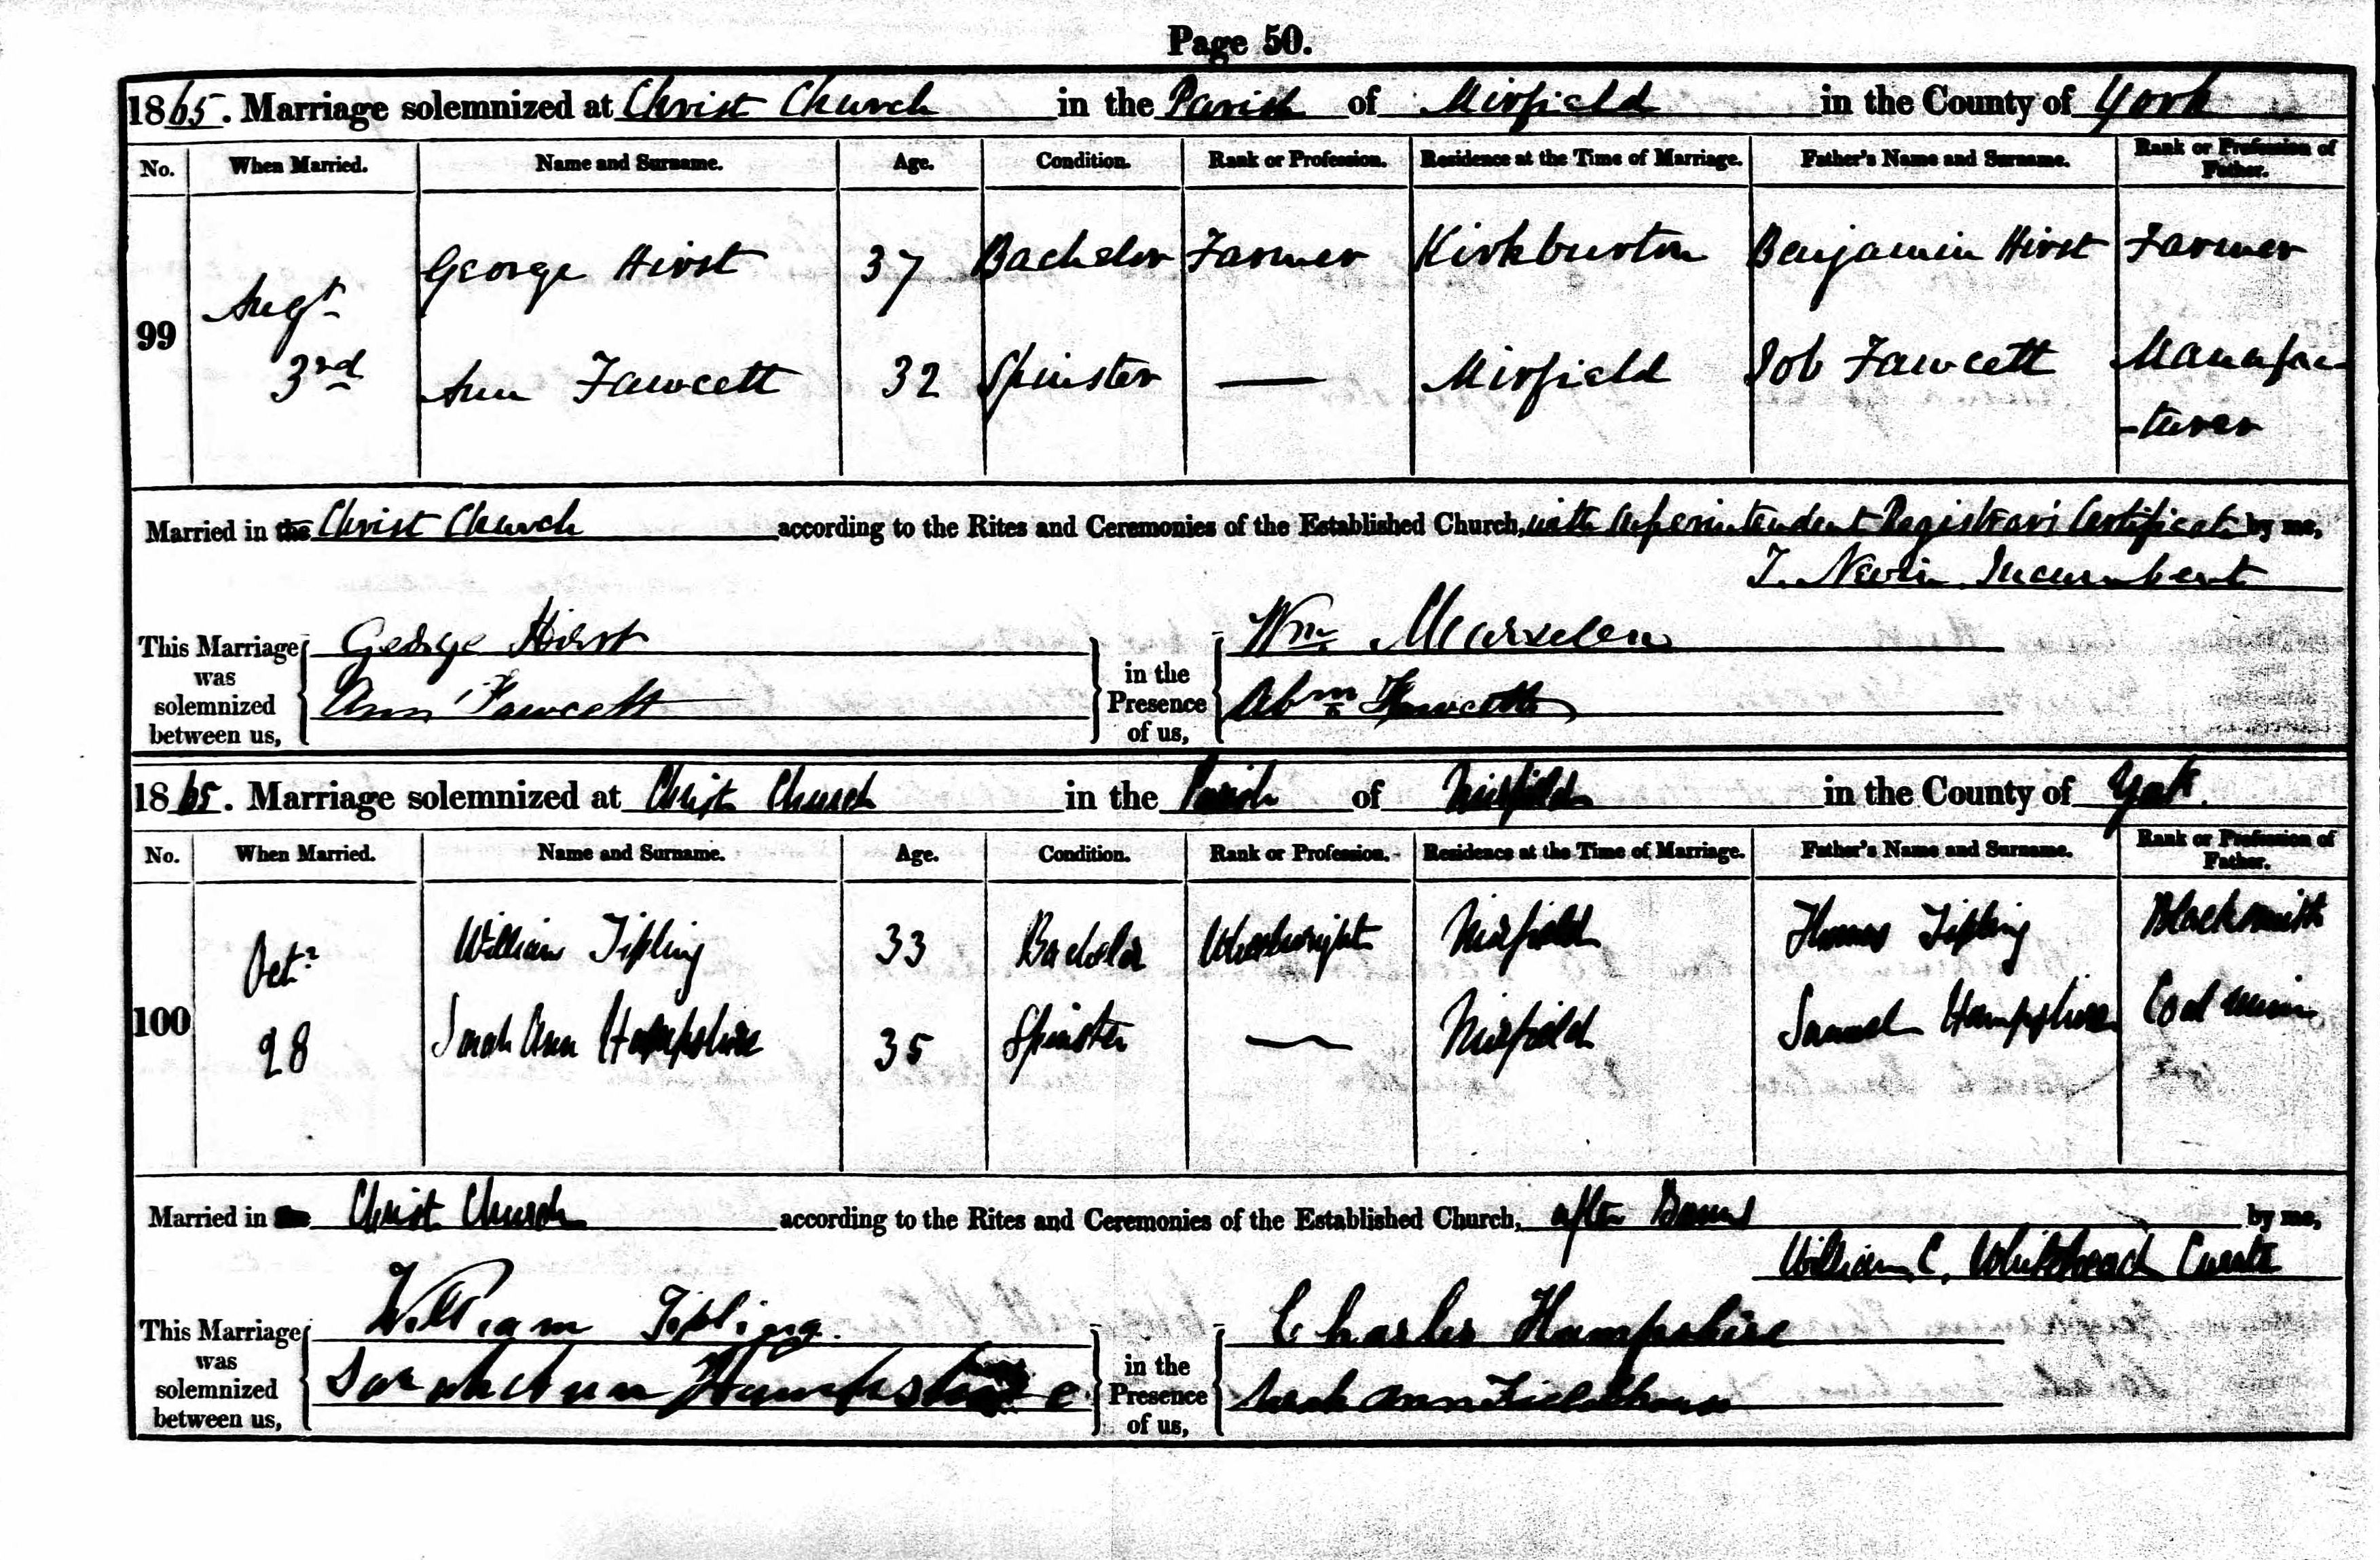 Page 50.
1865. Marriage solemnized at Christ Church in the Parish of Mirfield in the County of York
No. When Married. Name and Surname. Age. Condition. Rank or Profession. Residence at the Time of Marriage. Father's Name and Surname. Rank or Profession of Father.
99 Augt 3rd George Hirst 37 Bachelor Farmer Kirkburton Benjamin Hirst Farmer
Ann Fawcett 32 Spinster — Mirfield Job Fawcett Manufac-
-turer
Married in the Christ Church according to the Rites and Ceremonies of the Established Church, with Superintendent Registrars Certificate by me,
T. Nevin Incumbent
This Marriage was solemnized between us, George Hirst in the Presence of us, Wm Marsden
Ann Fawcett Abm Fawcett
1865. Marriage solemnized at Christ Church in the Parish of Mirfield in the County of York.
No. When Married. Name and Surname. Age. Condition. Rank or Profession. Residence at the Time of Marriage. Father's Name and Surname. Rank or Profession of Father.
100 Octr 28 William Tipling 33 Bachelor Wheelwright Mirfield Thomas Tipling Blacksmith
Sarah Ann Hampshire 35 Spinster — Mirfield Samuel Hampshire Coal miner
Married in Christ Church according to the Rites and Ceremonies of the Established Church, after Banns by me,
William C. Whitehead Curate
This Marriage was solemnized between us, William Tipling in the Presence of us, Charles Hampshire
Sarah Ann Hampshire Sarah Ann Fieldhouse